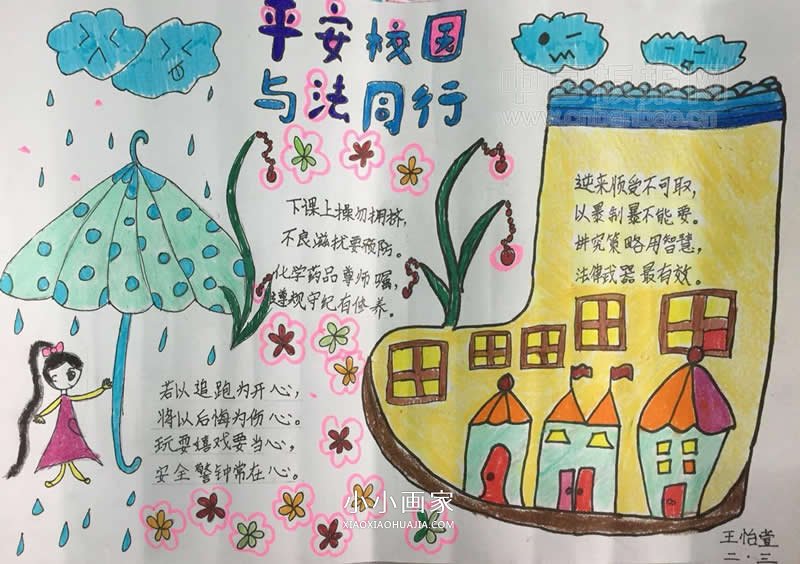 平安校园
与法同行
下课上操勿拥挤，
不良滋扰要预防。
化学药品尊师嘱，
遵规守纪有修养。
逆来顺受不可取，
以暴制暴不能要。
讲究策略用智慧，
法律武器最有效。
若以追跑为开心，
将以后悔为伤心。
玩耍嬉戏要当心，
安全警钟常在心。
小小画家
XIAOXIAOHUAJIA.COM
王怡萱
二·三